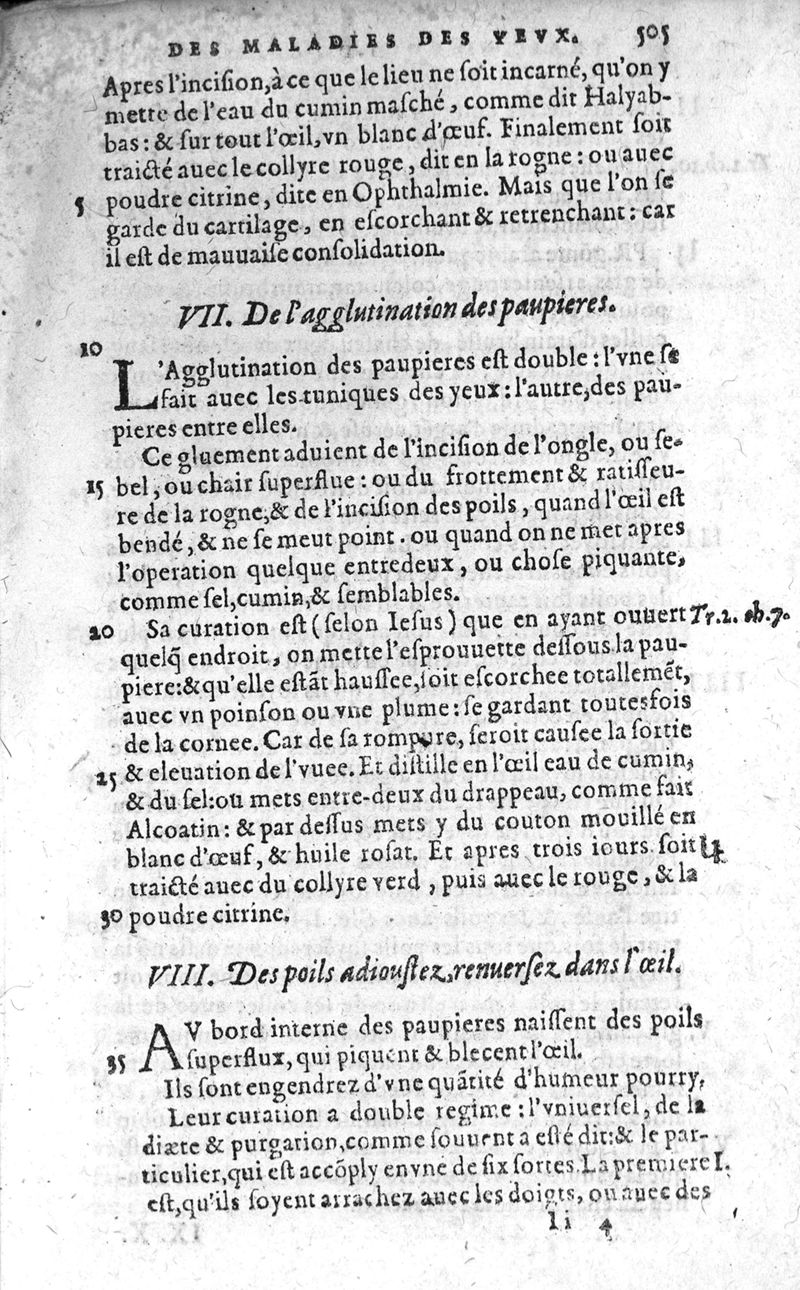 DES MALADIES DES YEVX. 505
Apres l'inciſion, à ce que le lieu ne ſoit incarné, qu'on y
mette de l'eau du cumin maſché, comme dit Halyab-
bas: & ſur tout l'œil, vn blanc d'œuf. Finalement ſoit
traicté auec le collyre rouge, dit en la rogne: ou auec
5 poudre citrine, dite en Ophthalmie. Mais que l'on ſe
garde du cartilage, en eſcorchant & retrenchant: car
il eſt de mauuaiſe conſolidation.
VII. De l'agglutination des paupieres.
10
L'Agglutination des paupieres eſt double: l'vne ſe
fait auec les tuniques des yeux: l'autre, des pau-
pieres entre elles.
Ce gluement aduient de l'inciſion de l'ongle, ou ſe-
15 bel, ou chair ſuperflue: ou du frottement & ratiſſeu-
re de la rogne, & de l'inciſion des poils, quand l'œil eſt
bendé, & ne ſe meut point. ou quand on ne met apres
l'operation quelque entredeux, ou choſe piquante,
comme ſel, cumin, & ſemblables.
20 Sa curation eſt (ſelon Ieſus) que en ayant ouuert Tr. 2. ch. 7.
quelq̃ endroit, on mette l'eſprouuette deſſous la pau-
piere: & qu'elle eſtãt hauſſee, ſoit eſcorchee totallemẽt,
auec vn poinſon ou vne plume: ſe gardant toutesfois
de la cornee. Car de ſa rompure, ſeroit cauſee la ſortie
25 & eleuation de l'vuee. Et diſtille en l'œil eau de cumin,
& du ſel: ou mets entre-deux du drappeau, comme fait
Alcoatin: & par deſſus mets y du couton mouillé en
blanc d'œuf, & huile roſat. Et apres trois iours ſoit
traicté auec du collyre verd, puis auec le rouge, & la
30 poudre citrine.
VIII. Des poils adiouſtez, renuerſez dans l'œil.
AV bord interne des paupieres naiſſent des poils
35 ſuperflux, qui piquent & blecent l'œil.
Ils ſont engendrez d'vne quãtité d'humeur pourry,
Leur curation a double regime: l'vniuerſel, de la
diæte & purgation, comme ſouuent a eſté dit: & le par-
ticulier, qui eſt accõply en vne de ſix ſortes. La premiere I.
eſt, qu'ils ſoyent arrachez auec les doigts, ou auec des
Ii 4